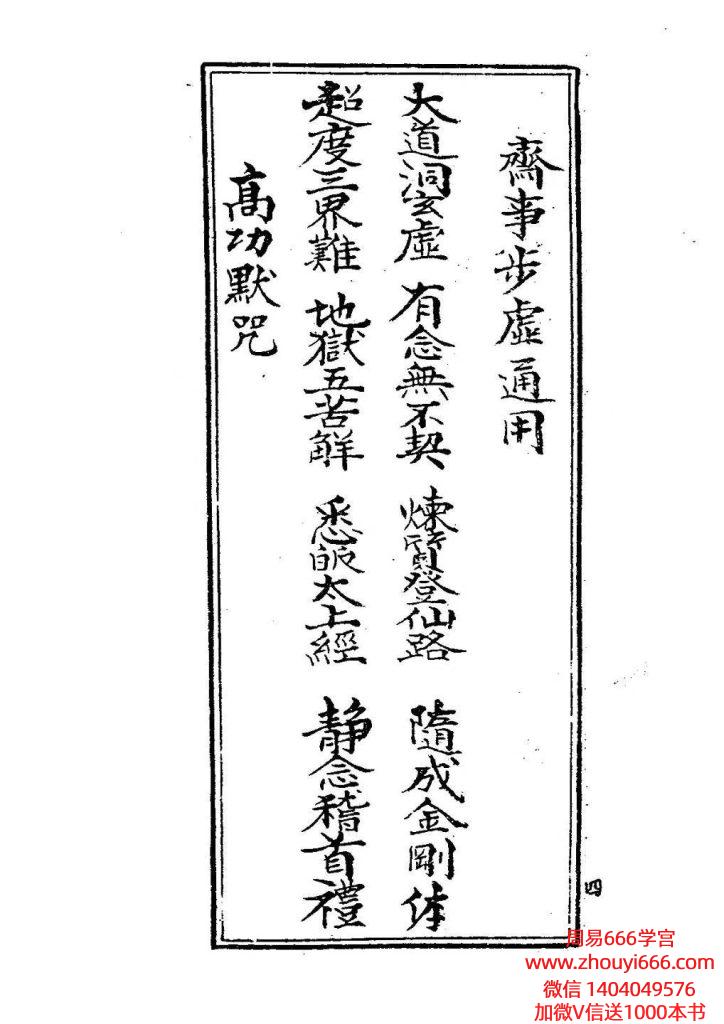 齋事步虛通用
大道洞玄虛 有念無不契 煉質登仙路 隨成金剛体
超度三界難 地獄五苦解 悉皈太上經 靜念稽首禮
高功默咒
四
周易666学宫
www.zhouyi666.com
微信 1404049576
加微V信送1000本书